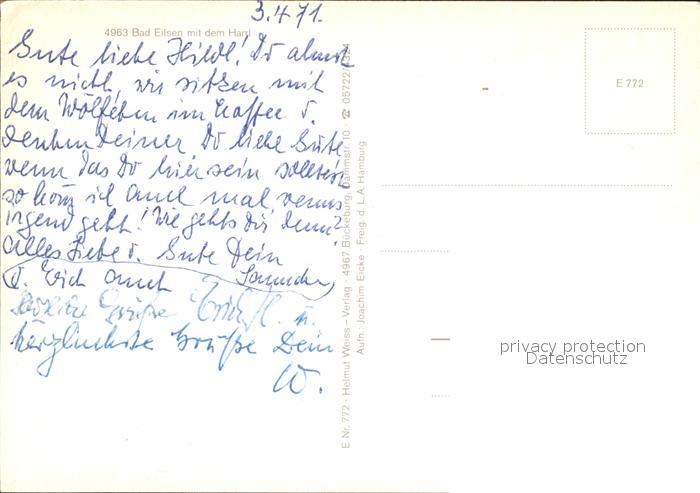 3.4.71.
4963 Bad Eilsen mit dem Harrl
Gute liebe Hilde! Du ahnst
es nicht, wir sitzen mit
dem Wölfchen im Kaffee u.
denken Deiner Du liebe Gute
wenn das Du hier sein solltest
so komm ich auch mal wenns
irgend geht! Wie gehts Dir denn?
Alles Liebe u. Gute Dein
u. Erich auch
Grüße Erich
herzlichste Grüße Dein
W.
E Nr. 772 · Helmut Weiss-Verlag · 4967 Bückeburg, Dammstr. 10 · ☎ 05722/4324
Aufn.: Joachim Eicke · Freig. d. L.A. Hamburg
E 772
privacy protection
Datenschutz